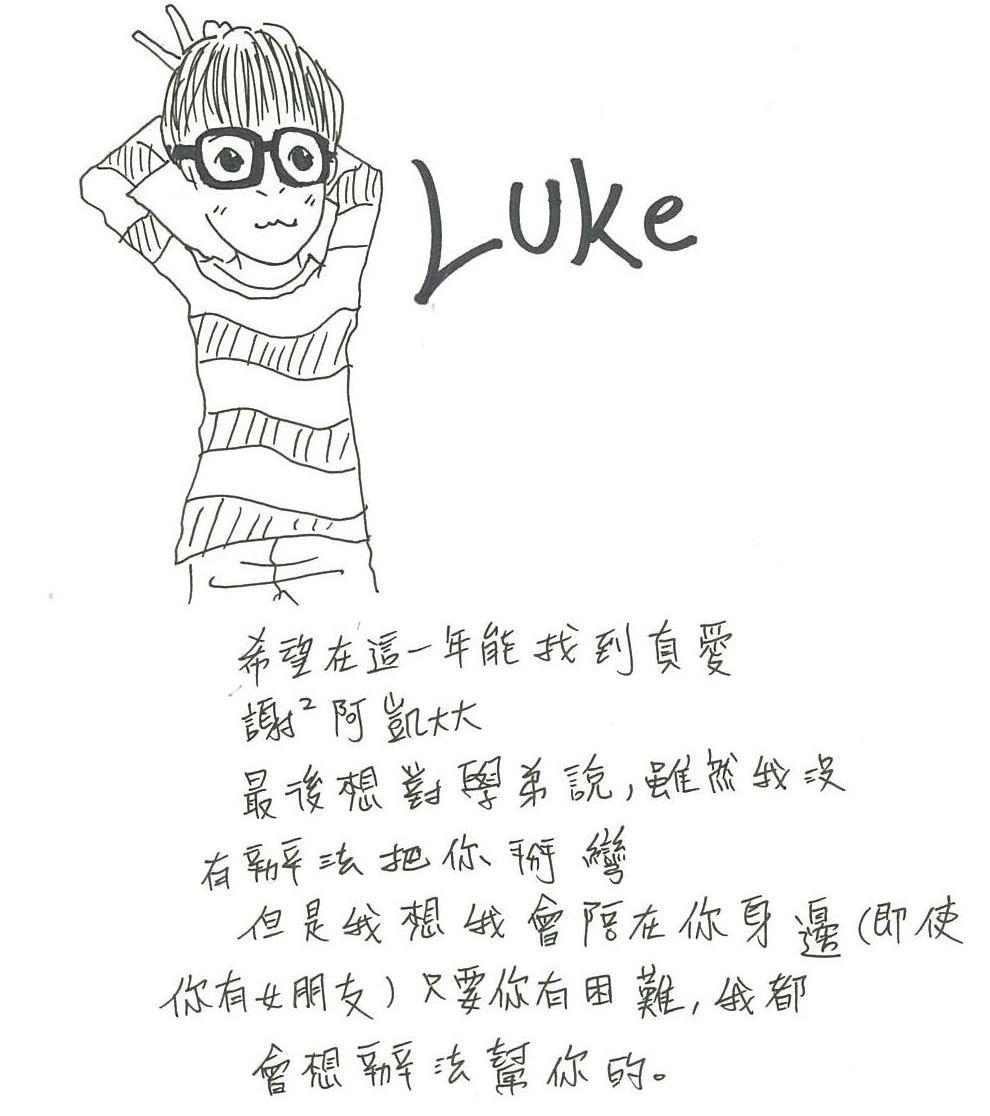 Luke
希望在這一年能找到真愛
謝² 阿凱大大
最後想對學弟說,雖然我沒
有辦法把你掰彎
但是我想我會陪在你身邊(即使
你有女朋友)只要你有困難,我都
會想辦法幫你的。